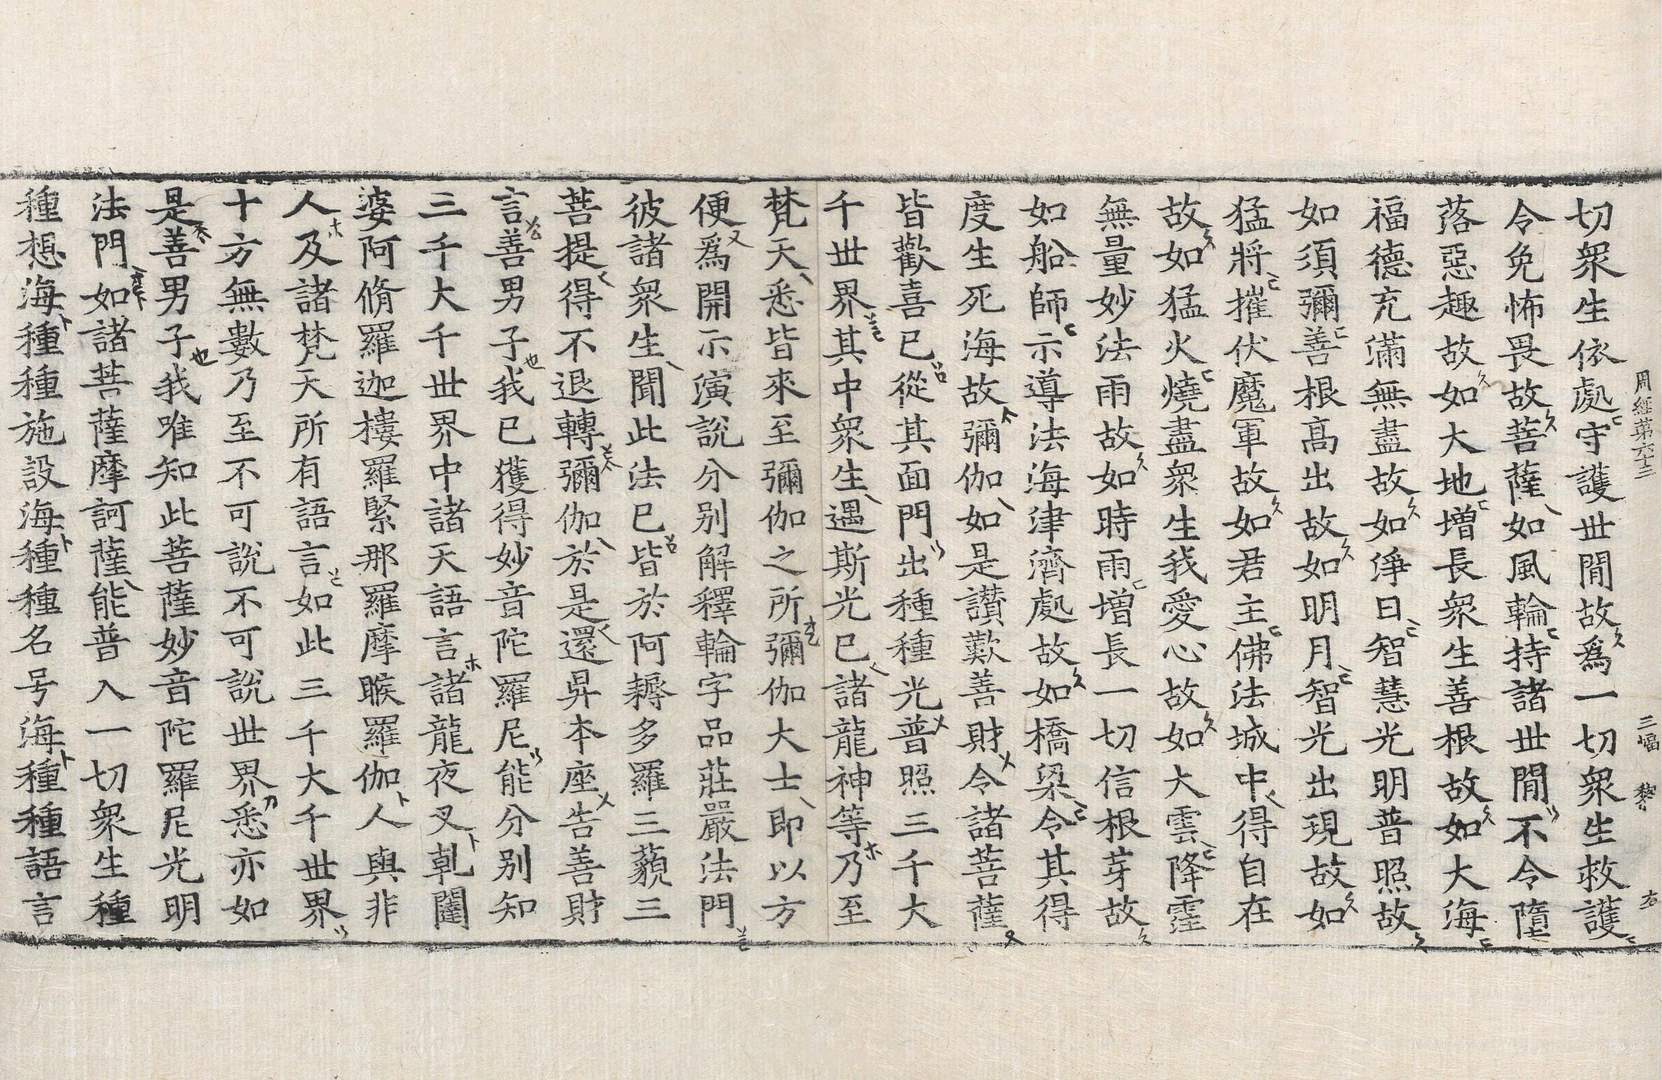 周經第六十三 三幅
切衆生依處守護世間故爲一切衆生救護
令免怖畏故菩薩如風輪持諸世間不令墮
落惡趣故如大地增長衆生善根故如大海
福德充滿無盡故如淨日智慧光明普照故
如須彌善根高出故如明月智光出現故如
猛將摧伏魔軍故如君主佛法城中得自在
故如猛火燒盡衆生我愛心故如大雲降霔
無量妙法雨故如時雨增長一切信根芽故
如船師示導法海津濟處故如橋梁令其得
度生死海故彌伽如是讃歎善財令諸菩薩
皆歡喜已從其面門出種種光普照三千大
千世界其中衆生遇斯光已諸龍神等乃至
梵天悉皆來至彌伽之所彌伽大士即以方
便爲開示演說分別解釋輪字品莊嚴法門
彼諸衆生聞此法已皆於阿耨多羅三藐三
菩提得不退轉彌伽於是還昇本座告善財
言善男子我已獲得妙音陀羅尼能分別知
三千大千世界中諸天語言諸龍夜叉乹闥
婆阿脩羅迦樓羅緊那羅摩睺羅伽人與非
人及諸梵天所有語言如此三千大千世界
十方無數乃至不可說不可說世界悉亦如
是善男子我唯知此菩薩妙音陀羅尼光明
法門如諸菩薩摩訶薩能普入一切衆生種
種想海種種施設海種種名号海種種語言